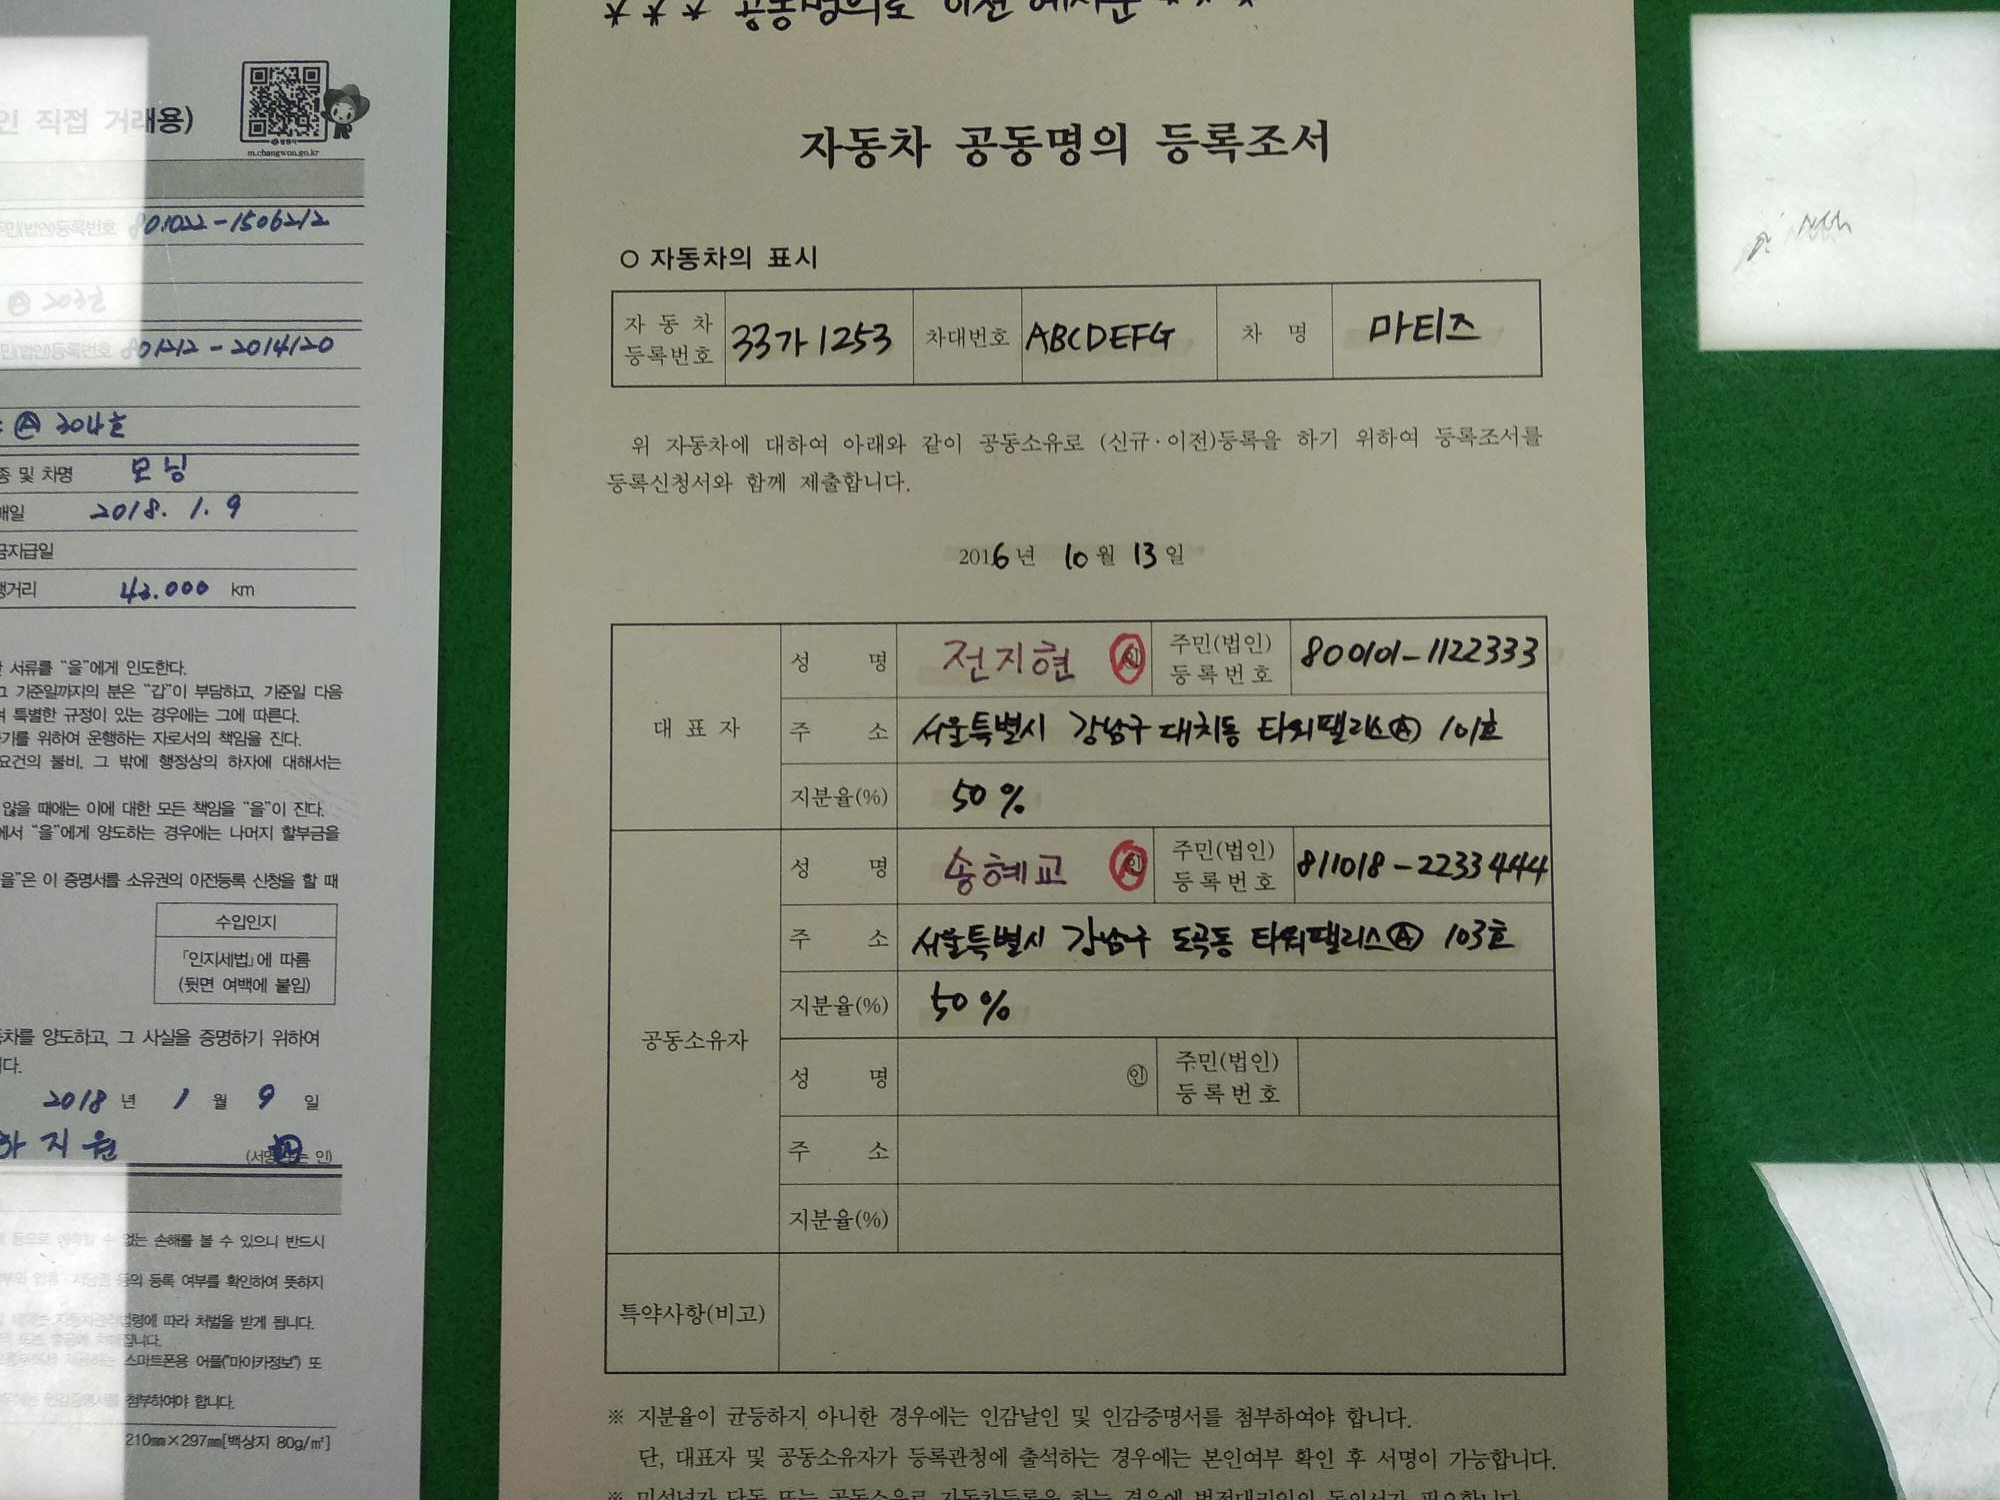 인 직접 거래용)
m.changwon.go.kr
주민(법인)등록번호 801022-1506212
Ⓐ 203호
주민(법인)등록번호 801212-2014120
Ⓐ 304호
종 및 차명 모닝
매일 2018. 1. 9
금지급일
행거리 42.000 km
서류를 "을"에게 인도한다.
그 기준일까지의 분은 "갑"이 부담하고, 기준일 다음
특별한 규정이 있는 경우에는 그에 따른다.
위하여 운행하는 자로서의 책임을 진다.
요건의 불비, 그 밖에 행정상의 하자에 대해서는
않을 때에는 이에 대한 모든 책임을 "을"이 진다.
에서 "을"에게 양도하는 경우에는 나머지 할부금을
을"은 이 증명서를 소유권의 이전등록 신청을 할 때
수입인지
「인지세법」에 따름
(뒷면 여백에 붙임)
동차를 양도하고, 그 사실을 증명하기 위하여
니다.
2018 년 1 월 9 일
하지원 (서명또는 인)
없는 손해를 볼 수 있으니 반드시
등의 등록 여부를 확인하여 뜻하지
자동차관리법령에 따라 처벌을 받게 됩니다.
스마트폰용 어플("마이카정보") 또
인감증명서를 첨부하여야 합니다.
210㎜×297㎜[백상지 80g/㎡]
*** 공동명의로 이전 예시문 ***
자동차 공동명의 등록조서
○ 자동차의 표시
자동차 등록번호 33가1253 차대번호 ABCDEFG 차 명 마티즈
위 자동차에 대하여 아래와 같이 공동소유로 (신규·이전)등록을 하기 위하여 등록조서를
등록신청서와 함께 제출합니다.
2016년 10월 13일
대표자
성 명 전지현 ㊞ 주민(법인) 등록번호 800101-1122333
주 소 서울특별시 강남구 대치동 타워팰리스Ⓐ 101호
지분율(%) 50%
공동소유자
성 명 송혜교 ㊞ 주민(법인) 등록번호 811018-2233444
주 소 서울특별시 강남구 도곡동 타워팰리스Ⓐ 103호
지분율(%) 50%
성 명 ㊞ 주민(법인) 등록번호
주 소
지분율(%)
특약사항(비고)
※ 지분율이 균등하지 아니한 경우에는 인감날인 및 인감증명서를 첨부하여야 합니다.
단, 대표자 및 공동소유자가 등록관청에 출석하는 경우에는 본인여부 확인 후 서명이 가능합니다.
※ 미성년자 단독 또는 공동소유로 자동차등록을 하는 경우에 법정대리인의 동의서가 필요합니다.